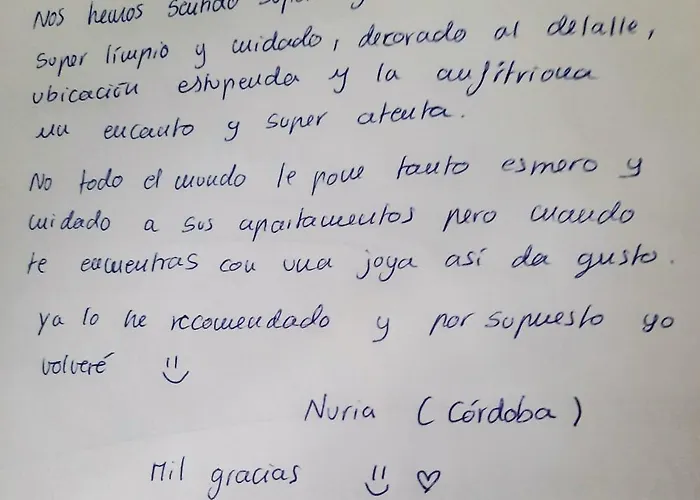 Nos hemos sentido super
super limpio y cuidado, decorado al detalle,
ubicación estupenda y la anfitriona
un encanto y super atenta.
No todo el mundo le pone tanto esmero y
cuidado a sus apartamentos pero cuando
te encuentras con una joya así da gusto.
ya lo he recomendado y por supuesto yo
volveré
Nuria (Córdoba)
Mil gracias ♡